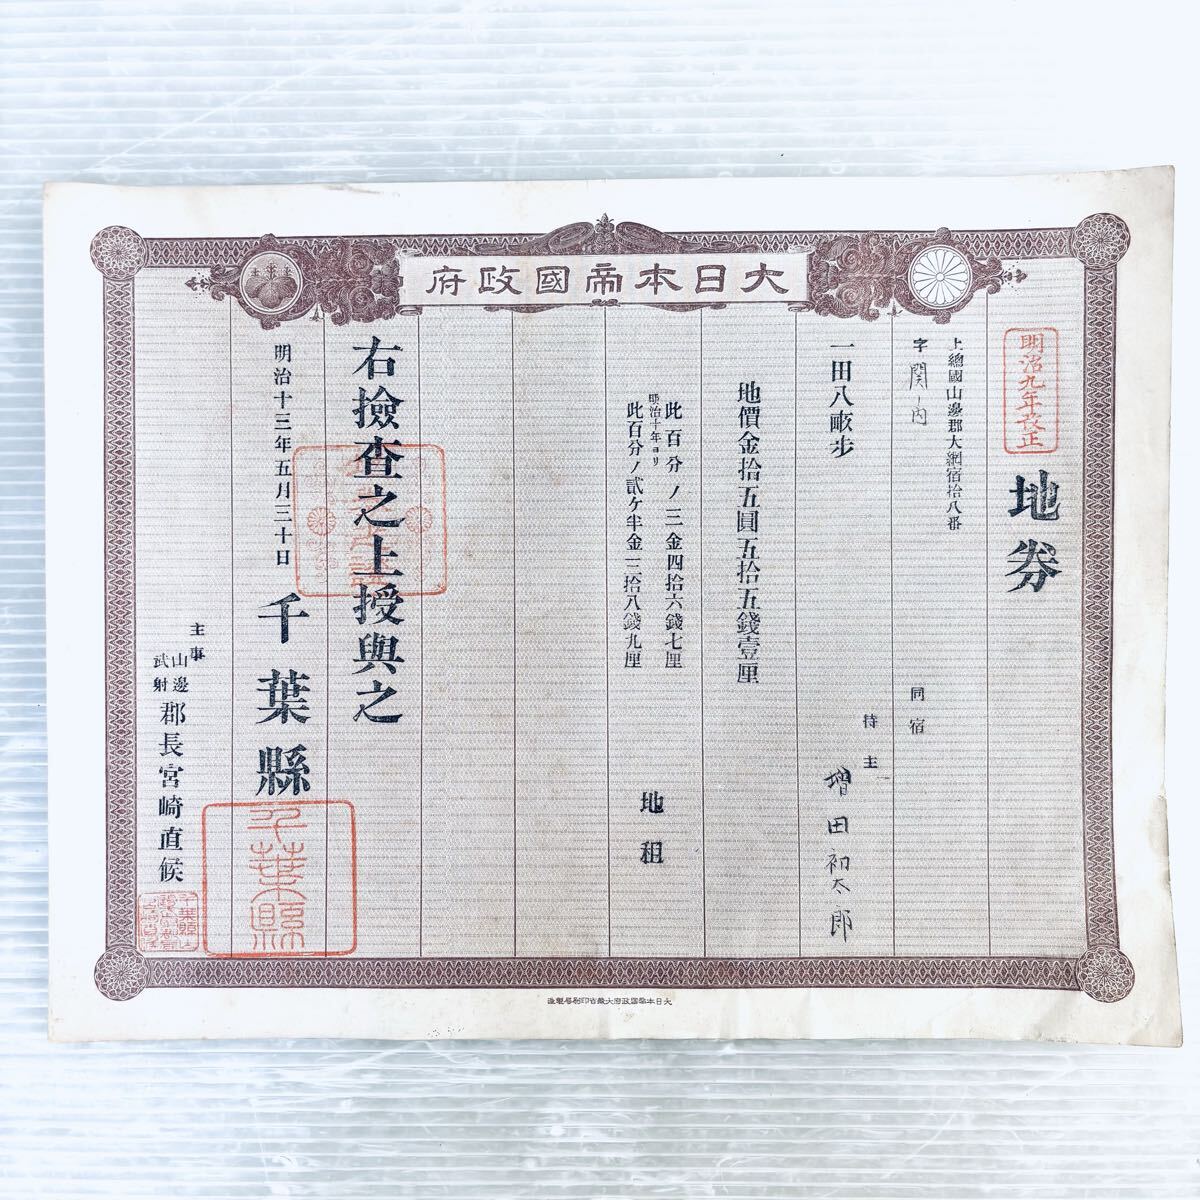 大日本帝國政府
明治九年改正
地券
上總國山邊郡大網宿拾八番
字関ノ内
同宿
持主
増田初太郎
一田八畝歩
地價金拾五圓五拾五錢壹厘
此百分ノ三金四拾六錢七厘
明治十年ヨリ
此百分ノ貳ケ半金三拾八錢九厘
地租
右撿査之上授與之
明治十三年五月三十日
千葉縣
千葉縣
主事
山邊
武射
郡長宮崎直候
大日本帝國政府大藏省印刷局製造